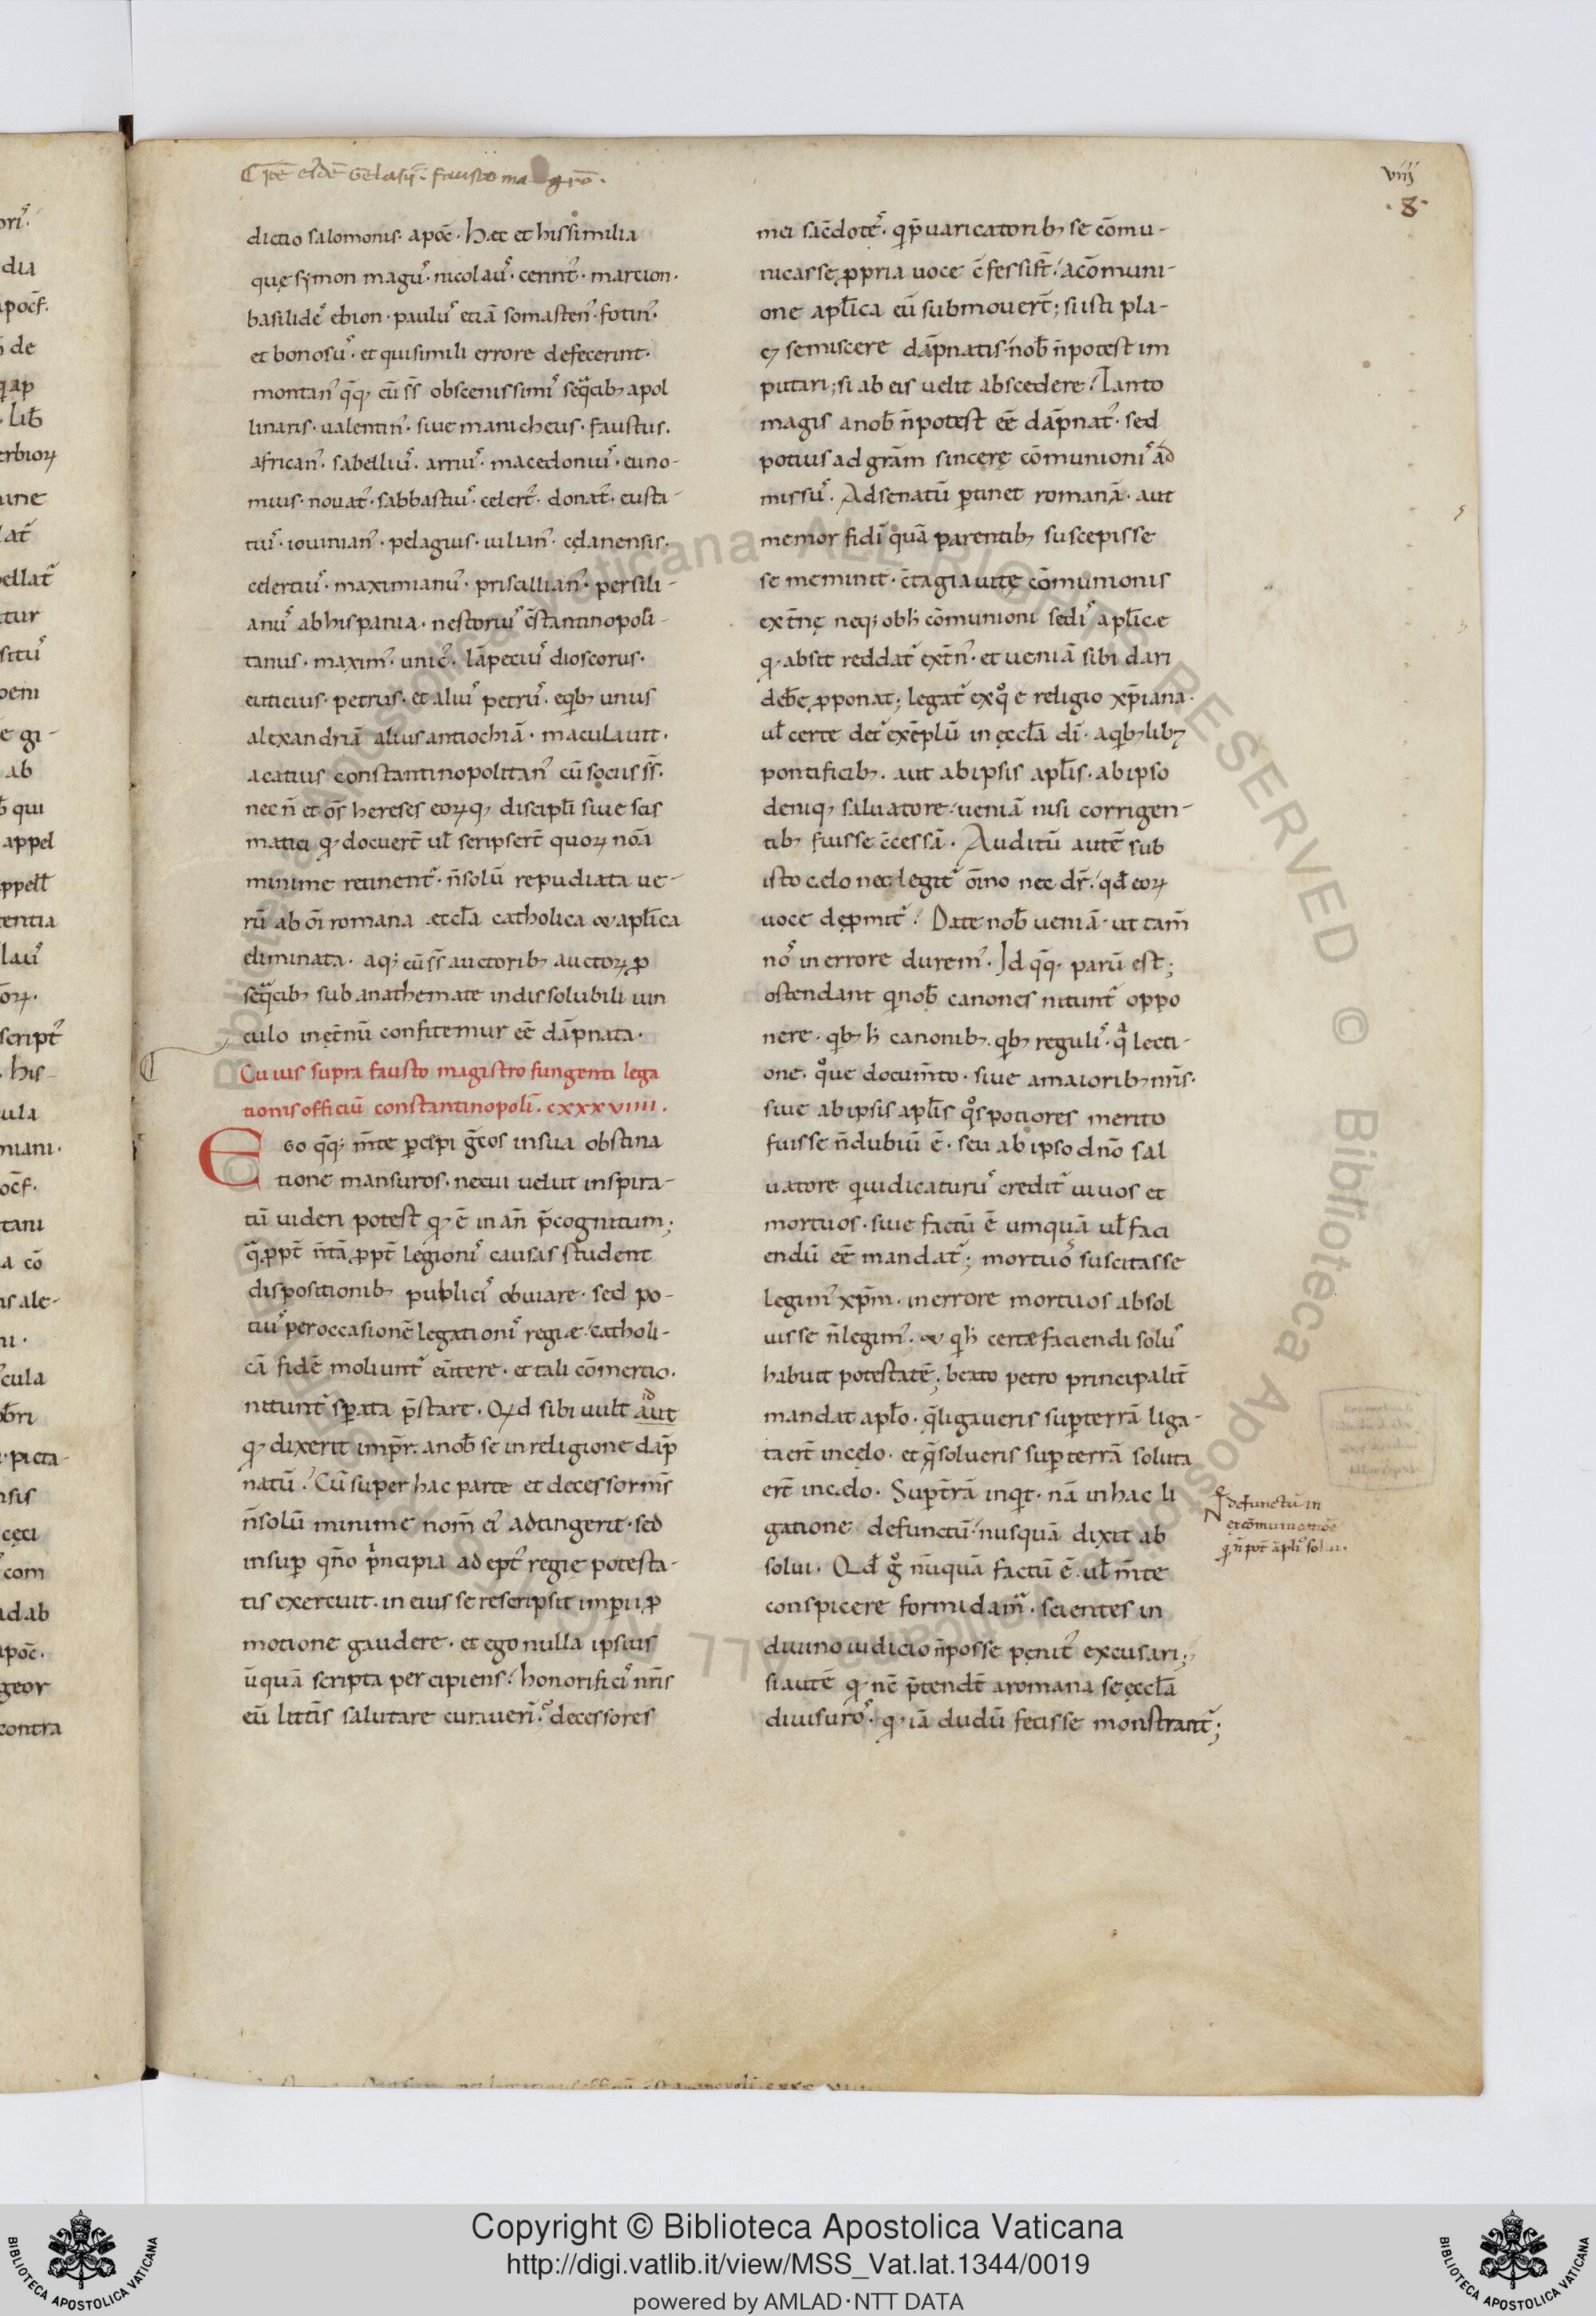 dictio salomonis. apoc̄. Hæc et his similia
quę symon magus᾽. nicolau᾽. cerint᾽. marcion.
basilide᾽ ebion. paulu᾽ etiā somasten᾽. fotin᾽.
et bonosu᾽. et qui simili errore defecerunt.
montan᾽ q̄q; cū ss̄ obscenissimi᾽ seq̄cib; apol
linaris. valentin᾽. sive manicheus. faustus.
african᾽. sabelliu᾽. arriu᾽. macedoniu᾽. euno-
mius. novat᾽. sabbastiu᾽. celert᾽. donat᾽. eusta-
tiu᾽. iovinian᾽. pelagius. iulian᾽. cęlanensis.
celertiu᾽. maximianu᾽. priscillian᾽. persili-
anu᾽ ab hispania. nestoriu᾽ c̄stantinopoli-
tanus. maxim᾽. unic᾽. lāpeciu᾽ dioscorus.
euticius. petrus. et aliu᾽ petru᾽. eqib; unus
alexandriā alius antiochiā. maculavit.
acatius constantinopolitan᾽ cū sociis ss̄.
nec n̄ et om̄s hereses eorꝝ q; discipli᾽ sive scis
matici q; docuert̄ ul̄ scripsert̄ quorꝝ noā
minime retinent᾽. n̄ solū repudiata ve-
rū ab om̄i romana æccl̄a catholica & apl̄ica
eliminata. aq; cū ss̄ auctorib; auctorꝝ ꝑ
seq̄cib; sub anathemate indissolubili vin
culo in ęt̄nū confitemur eē dāpnata.
Cuius supra fausto magistro fungenti lega
tionis officiū constantinopoli᾽. cxxxviiii.
Ego q̄q; m̄te ꝑcepi grecos in sua obstina
tione mansuros. nec ui velut inspira-
tū videri potest q; ē in an̄ p̄cognitum;
q̄ ꝓpt̄ n̄ tā ꝓpt̄ legioni᾽ causas student
dispositionib; publici᾽ obviare. sed po-
tiu᾽ per occasionē legationi᾽ regiæ catholi-
cā fidē moliunt᾽ ev̄tere. et tali cōmertio.
nitunt᾽ sꝑata p̄stare. Qd sibi vult aut
q; dixerit imp̄r. a nob᾽ se in religione dāp
natū? Cū super hac parte et decessor m̄s
n̄ solū minime nom̄ ei᾽ adtingerit. sed
insuꝑ qn̄o p̄ncipia adept᾽ regię potesta-
tis exercuit. in eius se rescripsit imꝑii ꝓ
motione gaudere. et ego nulla ipsius
ūquā scripta percipiens. honorifici᾽ nr̄is
eū litt̄is salutare curaverī. decessores
mei sac̄dote᾽. qi p̄varicatorib; se cōmu-
nicasse ꝓpria voce c̄fessi st̄. a cōmuni-
one apl̄ica eū submovert̄; si isti pla-
c; se miscere dāpnatis. nob᾽ n̄ potest im
putari; si ab eis velit abscedere. Tanto
magis a nob᾽ n̄ potest eē dāpnat᾽. sed
potius ad gr̄am sincerę cōmunioni᾽ ad
missu᾽. Ad senatū ꝑtinet romanā. aut
memor fidi᾽ quā parentib; suscepisse
se meminit. c̄tagia vitę cōmunionis
ext̄nę neq; ob h᾽ cōmunioni sedi᾽ apl̄icæ
q; absit reddat᾽ ext̄n᾽. et veniā sibi dari
deb᾽e ꝓponat; legat᾽ ex qo ē religio xp̄iana.
ul̄ certe det᾽ exēplū in ęccl̄a di᾽. a qib; lib;
pontificib;. aut ab ipsis apl̄is. ab ipso
deniq; salvatore. veniā nisi corrigen-
tib; fuisse c̄cessā. Auditū autē sub
isto cælo nec legit᾽ om̄ino nec dr̄. qd̄ eorꝝ
voce dęp̄mit᾽. Date nob᾽ veniā. ut tam̄
no᾽ in errore durem᾽. Id q̄q; parū est;
ostendant qi nob᾽ canones nitunt᾽ oppo
nere. qib; h᾽ canonib;. qib; reguli᾽. qa lecti-
one. qove docum̄to. sive a maiorib; nr̄is.
sive ab ipsis apl̄is qos potiores merito
fuisse n̄ dubiū ē. seu ab ipso dn̄o sal
vatore qi iudicaturu᾽ credit᾽ vivos et
mortuos. sive factū ē umquā ul̄ faci
endū eē mandat᾽; mortuo᾽ suscitasse
legim᾽ xp̄m. in errore mortuos absol
visse n̄ legim᾽. & qi h᾽ certæ faciendi solu᾽
habuit potestatē; beato petro principalit̄
mandat apl̄o. q̄ ligaveris suꝑ terrā liga-
ta ert̄ in cęlo. et q̄ solveris suꝑ terrā soluta
ert̄ in cælo. Suꝑ t̄rā inqit. nā in hac li
gatione defunctū. nusquā dixit ab
solvi. Qd̄ go nūquā factū ē. ul̄ m̄te
conspicere formidam᾽. scientes in
divino iudicio n̄ posse pęnit᾽ excusari;
si autē q; nc̄ p̄tendt̄ a romana se ęccl̄a
divisuro᾽. q; iā dudū fecisse monstrant᾽;
viiij
8
defunctū in
excōmunicatiōe
Copyright © Biblioteca Apostolica Vaticana
http://digi.vatlib.it/view/MSS_Vat.lat.1344/0019
powered by AMLAD·NTT DATA
BIBLIOTECA APOSTOLICA VATICANA
BIBLIOTECA APOSTOLICA VATICANA